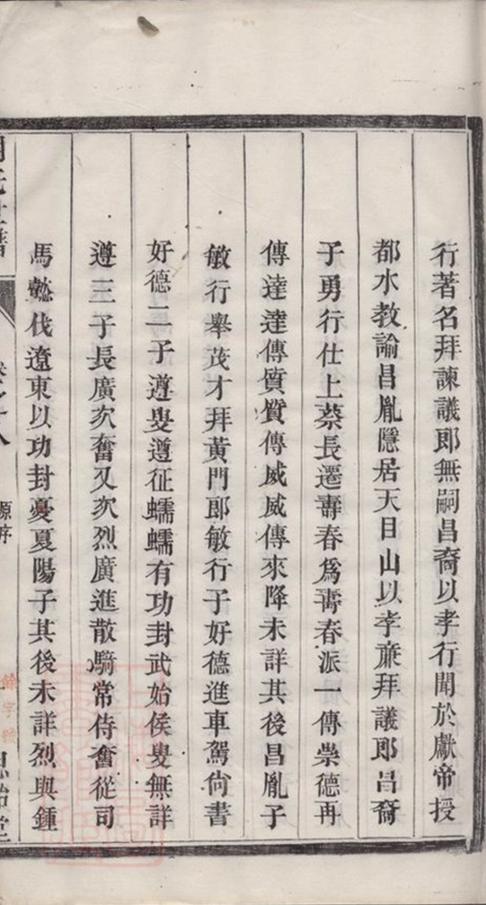 行著名拜諫議郎無嗣昌裔以孝行聞於獻帝授
都水教諭昌胤隱居天目山以孝亷拜議郎昌裔
子勇行仕上蔡長遷壽春爲壽春派一傳崇德再
傳達達傳質質傳威威傳來降未詳其後昌胤子
敏行舉茂才拜黃門郎敏行子好德進車駕尙書
好德二子遵叟遵征蠕蠕有功封武始侯叟無詳
遵三子長廣次奮又次烈廣進散騎常侍奮從司
馬懿伐遼東以功封憂夏陽子其後未詳烈與鍾
原序